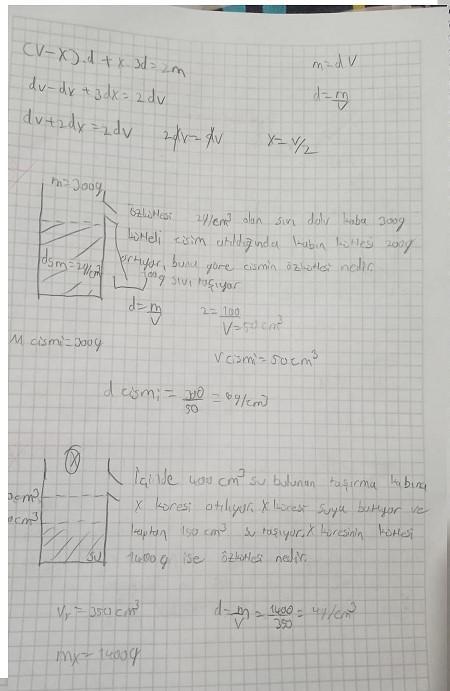 (V-X).d + x.3d = 2m
m = dV
dv - dx + 3dx = 2dv
d = m/V
dv + 2dx = 2dv
2dx = dv
x = V/2
m=300g
özkütlesi 2g/cm³ olan sıvı dolu kaba 300g
kütleli cisim atıldığında kabın kütlesi 200g
dsıvı=2g/cm³
artıyor, buna göre cismin özkütlesi nedir.
100g sıvı taşıyor
d = m/V
2 = 100/V = 50 cm³
M cismi = 300g
V cismi = 50cm³
d cismi = 300/50 = 6g/cm³
X
İçinde 400 cm³ su bulunan taşırma kabına
cm³
X küresi atılıyor, X küresi suya batıyor ve
cm³
kaptan 150 cm³ su taşıyor, X küresinin kütlesi
su
1400g ise özkütlesi nedir.
= 350cm³
d = m/V = 1400/350 = 4g/cm³
mx = 1400g